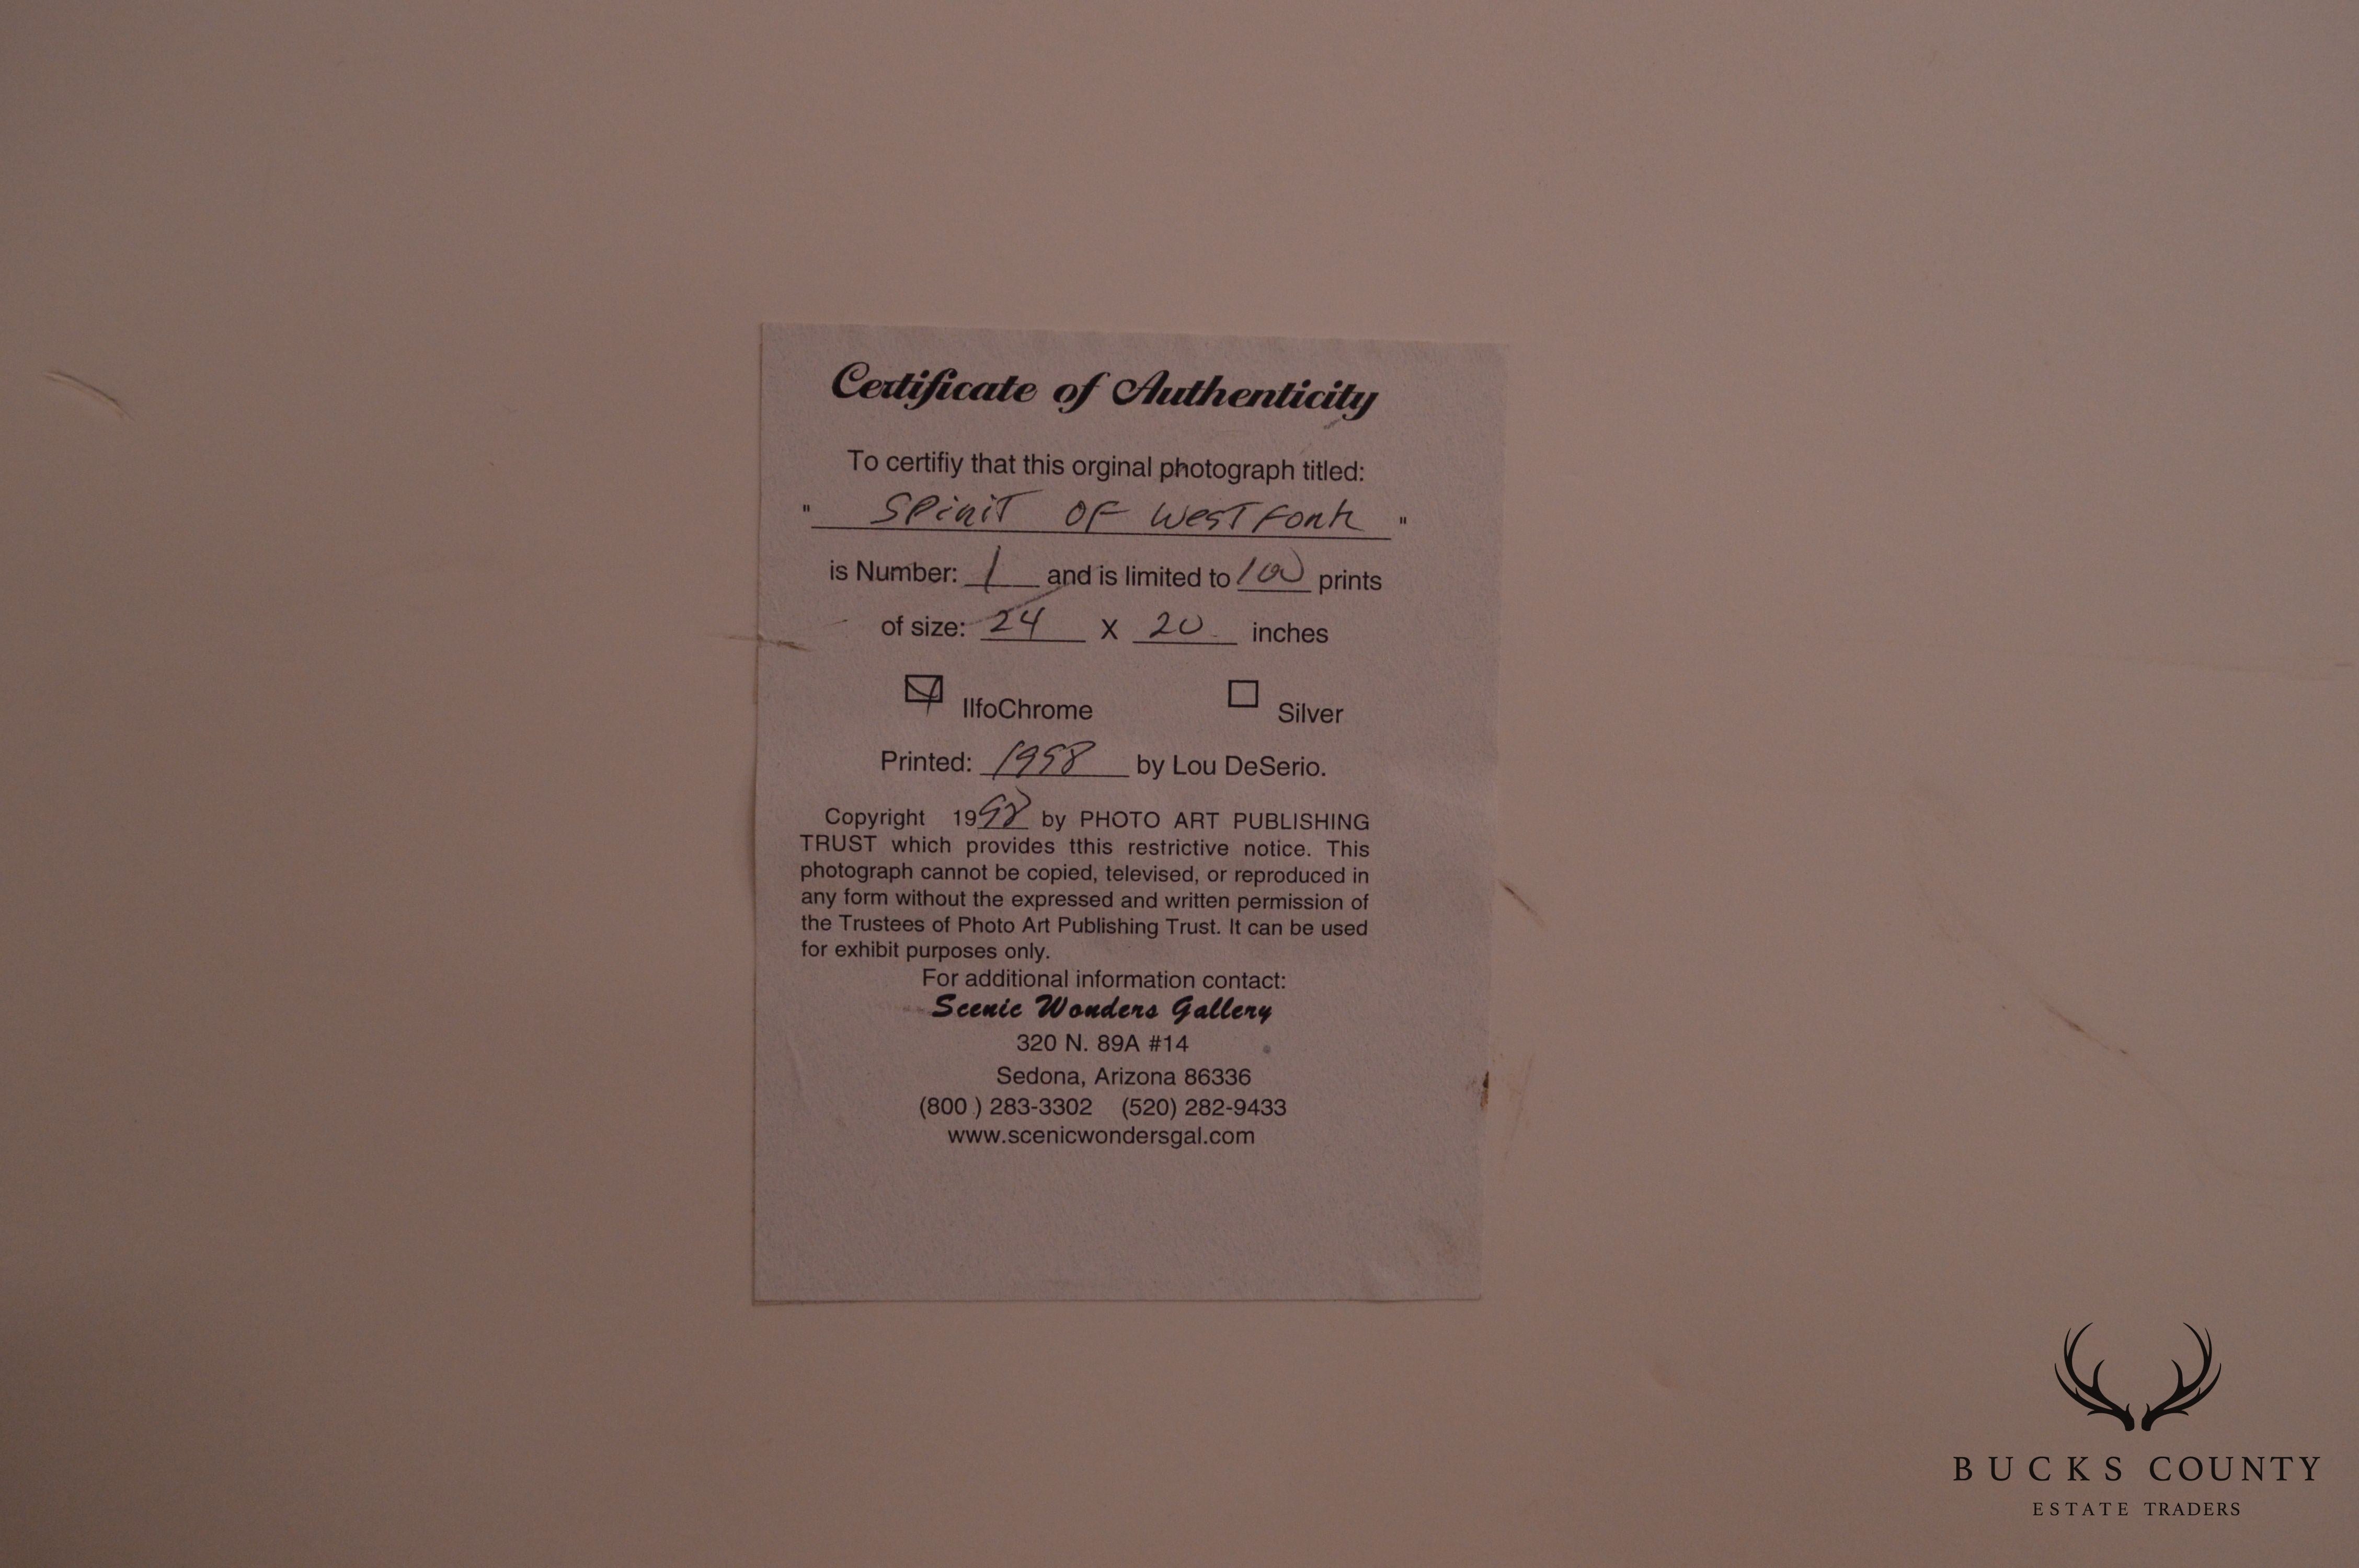 Certificate of Authenticity
To certifiy that this orginal photograph titled:
" SPiRiT OF WesT FoRk "
is Number: 1 and is limited to 100 prints
of size: 24 X 20 inches
IlfoChrome Silver
Printed: 1998 by Lou DeSerio.
Copyright 1998 by PHOTO ART PUBLISHING
TRUST which provides tthis restrictive notice. This
photograph cannot be copied, televised, or reproduced in
any form without the expressed and written permission of
the Trustees of Photo Art Publishing Trust. It can be used
for exhibit purposes only.
For additional information contact:
Scenic Wonders Gallery
320 N. 89A #14
Sedona, Arizona 86336
(800 ) 283-3302 (520) 282-9433
www.scenicwondersgal.com
BUCKS COUNTY
ESTATE TRADERS